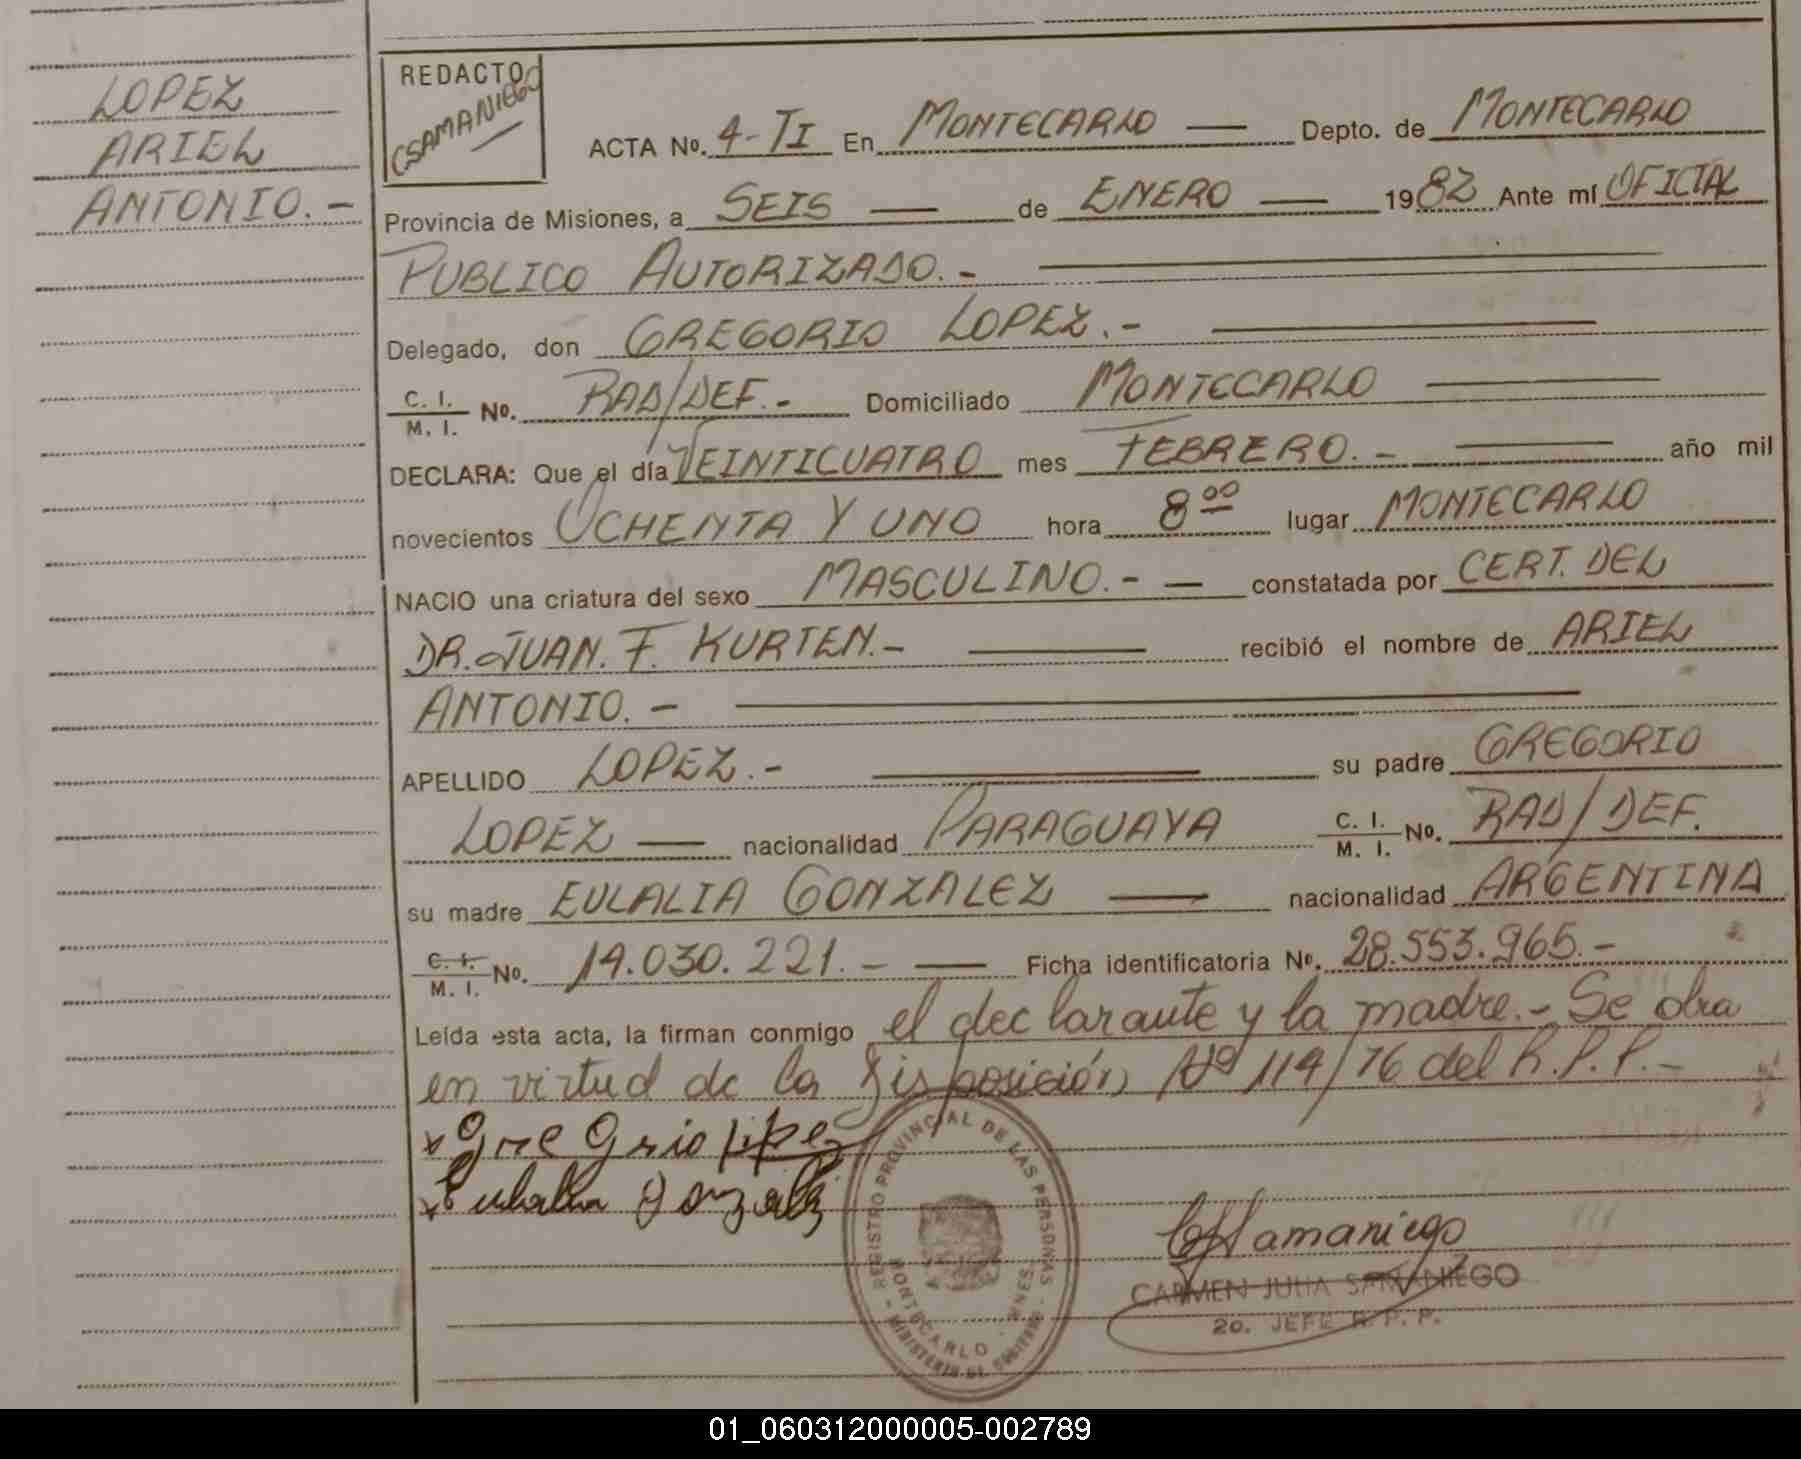 LOPEZ
ARIEL
ANTONIO.-
REDACTO
CSAMANIEGO
ACTA No. 4-TI En MONTECARLO — Depto. de MONTECARLO
Provincia de Misiones, a SEIS — de ENERO — 1982 Ante mí OFICIAL
PUBLICO AUTORIZADO.-
Delegado, don GREGORIO LOPEZ.-
C. I. / M. I. No. RAD/DEF.- Domiciliado MONTECARLO
DECLARA: Que el día VEINTICUATRO mes FEBRERO.- año mil
novecientos OCHENTA Y UNO hora 8 00 lugar MONTECARLO
NACIO una criatura del sexo MASCULINO.- — constatada por CERT. DEL
DR. JUAN. F. KURTEN.- recibió el nombre de ARIEL
ANTONIO.-
APELLIDO LOPEZ.- su padre GREGORIO
LOPEZ — nacionalidad PARAGUAYA C. I. / M. I. No. RAD/DEF.
su madre EULALIA GONZALEZ — nacionalidad ARGENTINA
C. I. / M. I. No. 14.030.221.- — Ficha identificatoria No. 28.553.965.-
Leída esta acta, la firman conmigo el declarante y la madre.- Se obra
en virtud de la Disposición Nº 114/76 del R.P.P.-
x Gregorio Lopez
x Eulalia Gonzalez
REGISTRO PROVINCIAL DE LAS PERSONAS
MONTECARLO
MINISTERIO DE GOBIERNO
CJSamaniego
CARMEN JULIA SAMANIEGO
2o. JEFE R. P. P.
01_060312000005-002789